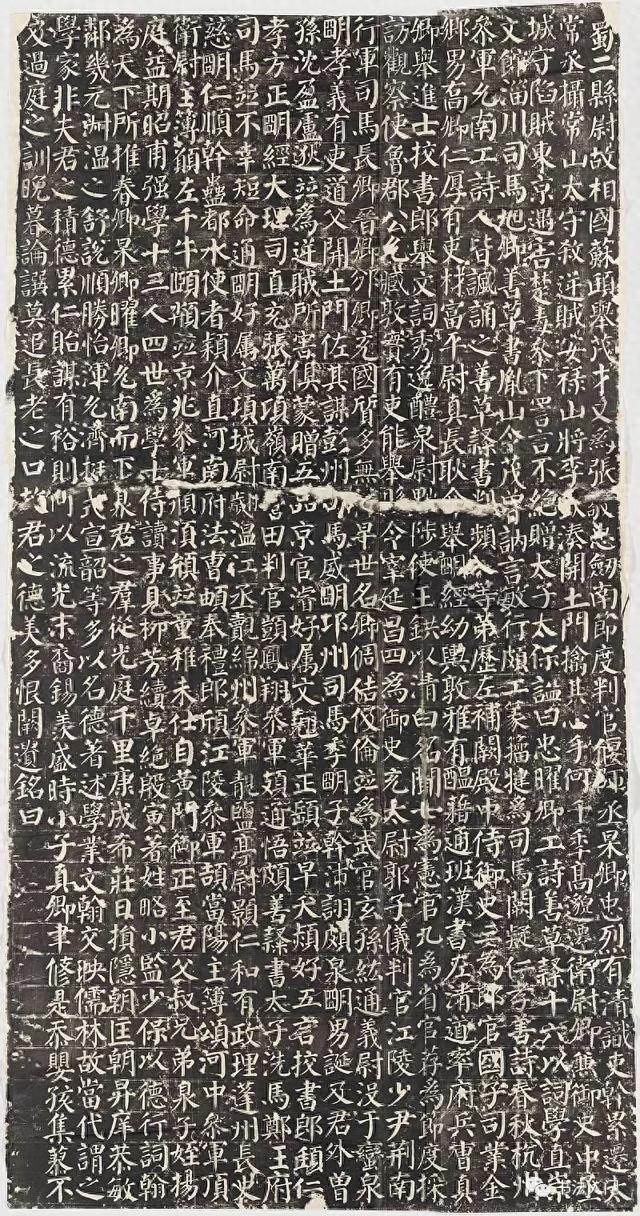 蜀二縣尉故相國蘇頲舉茂才又為張敬忠劍南節度判官偃師丞杲卿忠烈有清識吏幹累遷太
常丞攝常山太守殺逆賊安祿山將李欽湊開土門擒其心手何千年高邈遷衛尉卿兼御史中丞
城守陷賊東京遇害楚毒參下詈言不絕贈太子太保謚曰忠曜卿工詩善草隸十六以詞學直崇
文館淄川司馬旭卿善草書胤山令茂曾訥言敏行頗工篆籀犍為司馬闕疑仁孝善詩春秋杭州
參軍允南工詩人皆諷誦之善草隸書判頻入等第歷左補闕殿中侍御史三為郎官國子司業金
鄉男喬卿仁厚有吏材富平尉真長耿介舉明經幼輿敦雅有醞藉通班漢書左清道率府兵曹真
卿舉進士挍書郎舉文詞秀逸醴泉尉黜陟使王鉷以清白名聞七為憲官九為省官荐為節度採
訪觀察使魯郡公允臧敦實有吏能舉縣令宰延昌四為御史充太尉郭子儀判官江陵少尹荊南
行軍司馬長卿晉卿邠卿充國質多無祿早世名卿倜佶伋倫並為武官玄孫紘通義尉沒于蠻泉
明孝義有吏道父開土門佐其謀彭州司馬威明邛州司馬季明子幹沛詡頗泉明男誕及君外曾
孫沈盈盧逖並為逆賊所害俱蒙贈五品京官濬好屬文翹華正頤並早夭熲好五言挍書郎頲仁
孝方正明經大理司直充張萬頃嶺南營田判官顗鳳翔參軍頍通悟頗善隸書太子洗馬鄭王府
司馬並不幸短命通明好屬文項城尉翽溫江丞覿綿州參軍靘鹽亭尉顥仁和有政理蓬州長史
慈明仁順幹蠱都水使者穎介直河南府法曹頔奉禮郎頎江陵參軍頡當陽主簿頌河中參軍頂
衛尉主簿願左千牛頤頵並京兆參軍頊須頩並童稚未仕自黃門御正至君父叔兄弟息子姪揚
庭益期昭甫強學十三人四世為學士侍讀事見柳芳續卓絕殷寅著姓略小監少保以德行詞翰
為天下所推春卿杲卿曜卿允南而下息君之群從光庭千里康成希莊日損隱朝匡朝昇庠恭敏
鄰幾元淑溫之舒說順勝怡渾允濟挺式宣韶等多以名德著述學業文翰交映儒林故當代謂之
學家非夫君之積德累仁貽謀有裕則何以流光末裔錫羨盛時小子真卿聿脩是忝嬰孩集蓼不
及過庭之訓晚暮論譔莫追長老之口故君之德美多恨闕遺銘曰